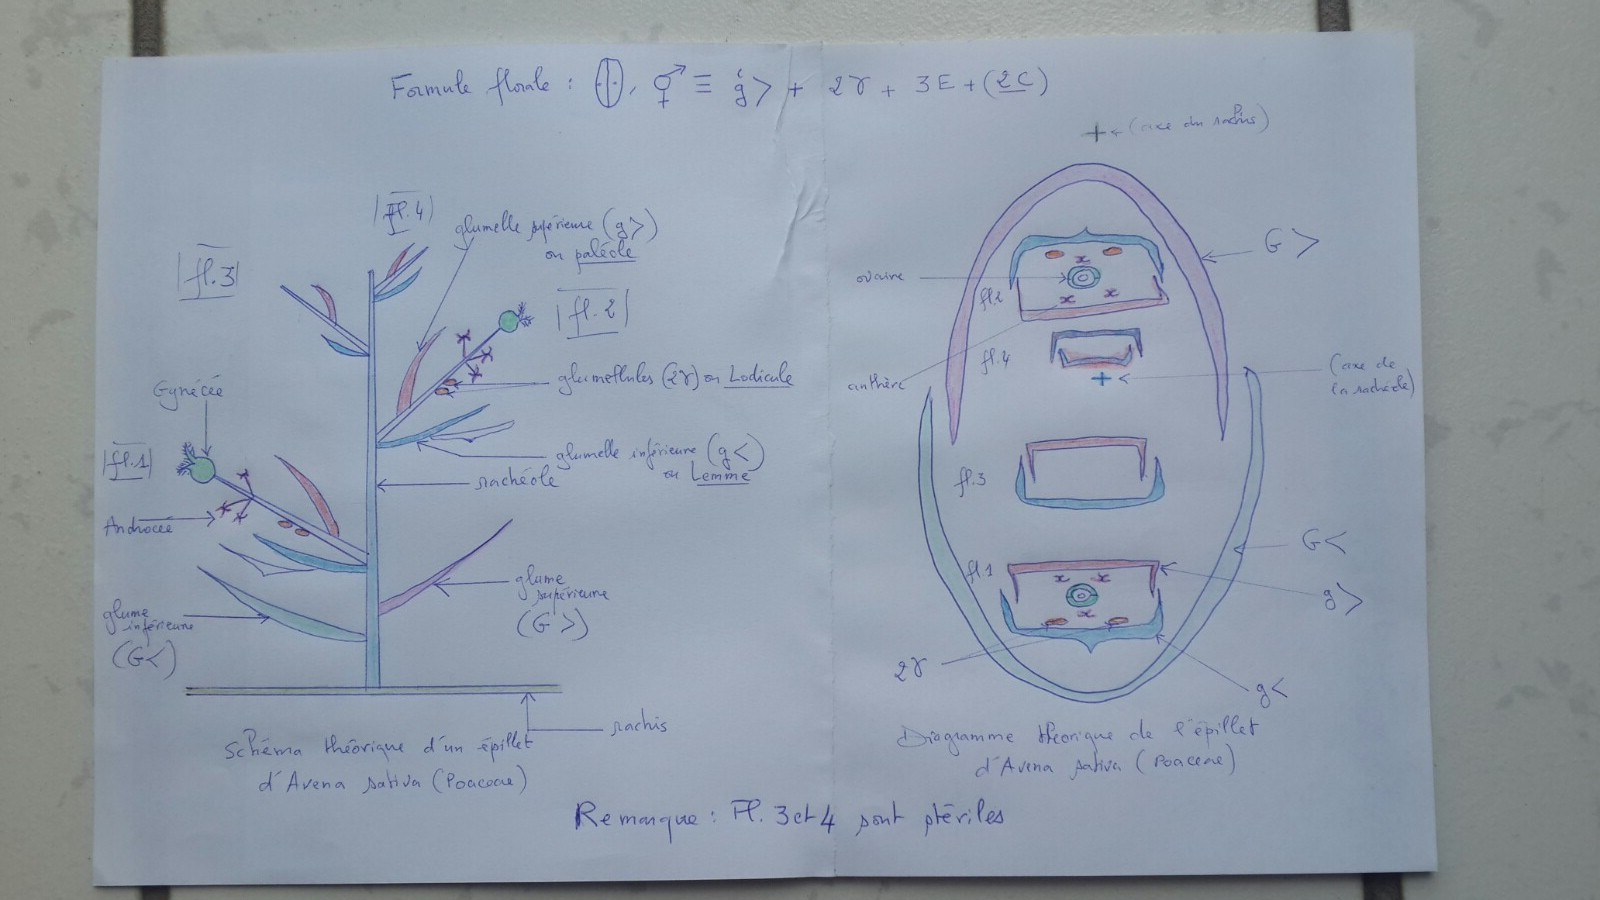 Formule florale : , ⚥ ≡ g> + 2γ + 3E + (2C)
|fl.4)
glumelle supérieure (g>)
ou paléole
|fl.3|
|fl.2|
glumellules (2γ) ou Lodicule
Gynécée
|fl.1)
Androcée
glumelle inférieure (g<)
ou Lemme
rachéole
glume
supérieure
(G>)
glume
inférieure
(G<)
rachis
Schéma théorique d'un épillet
d'Avena sativa (Poaceae)
+ ← (axe du rachis)
G>
ovaire
fl.2
fl.4
anthère
+ ← (axe de
la rachéole)
fl.3
G<
fl.1
g>
2γ
g<
Diagramme théorique de l'épillet
d'Avena sativa (Poaceae)
Remarque : Fl. 3 et 4 sont stériles